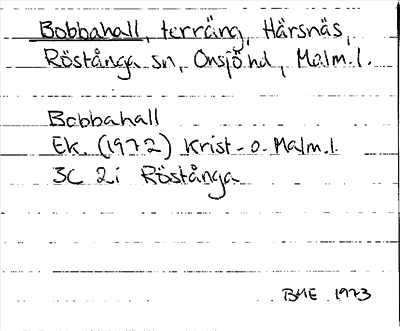 Bobbahall, terräng, Härsnäs,
Röstånga sn, Onsjö hd, Malm.l.
Bobbahall
Ek. (1972) Krist- o. Malm.l.
3C 2i Röstånga
BME 1973